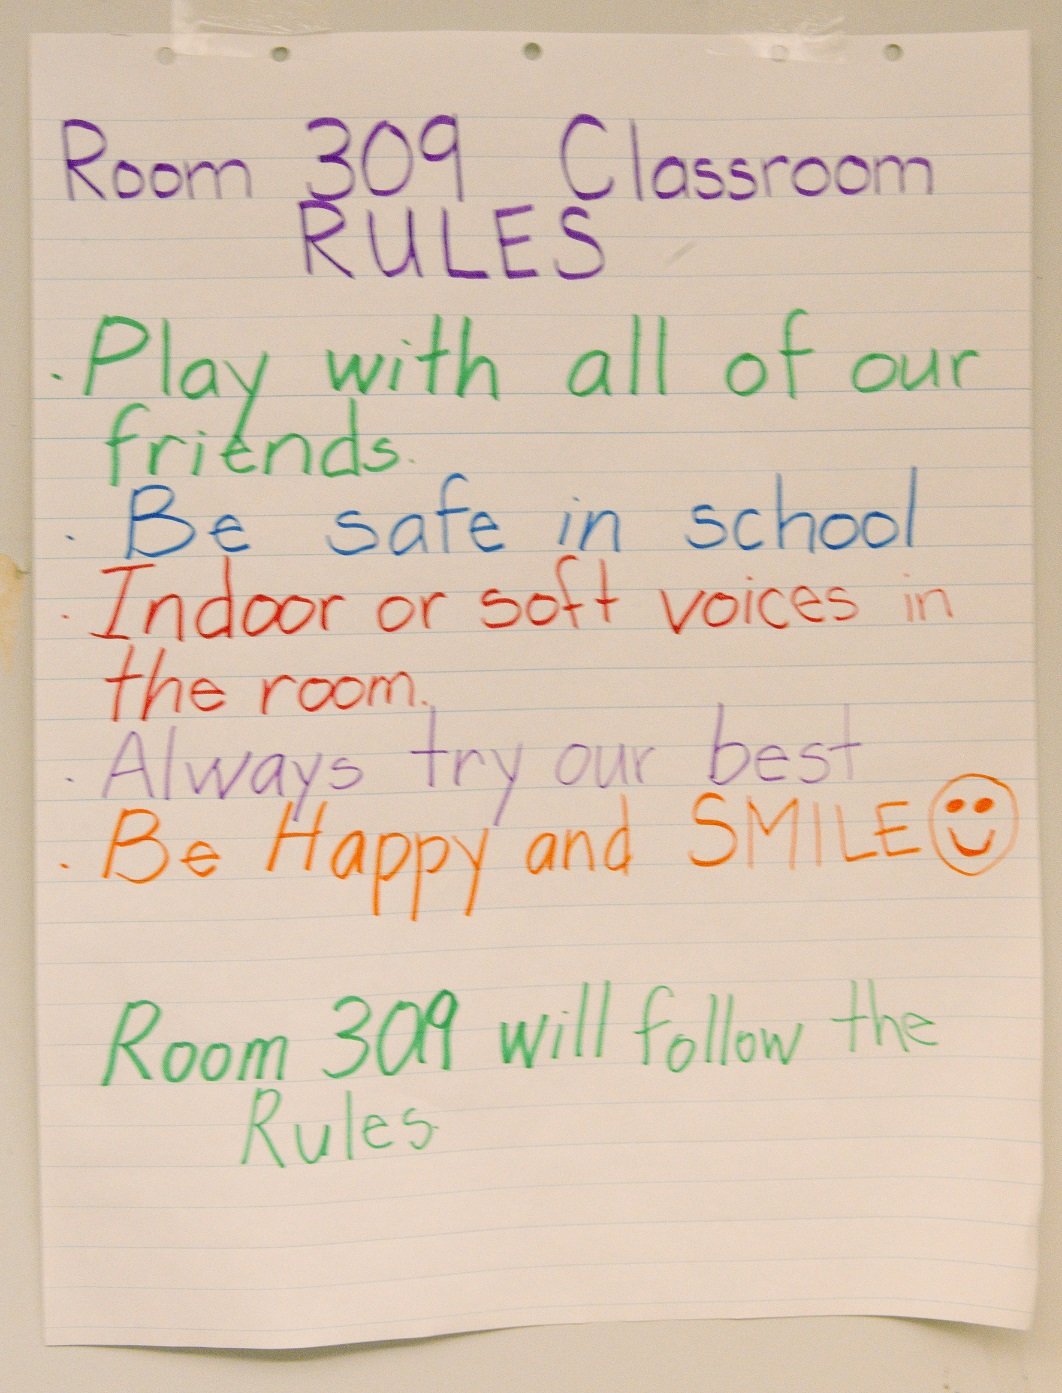 Room 309 Classroom
RULES
· Play with all of our
friends.
· Be safe in school
· Indoor or soft voices in
the room.
· Always try our best
· Be Happy and SMILE
Room 309 will follow the
Rules